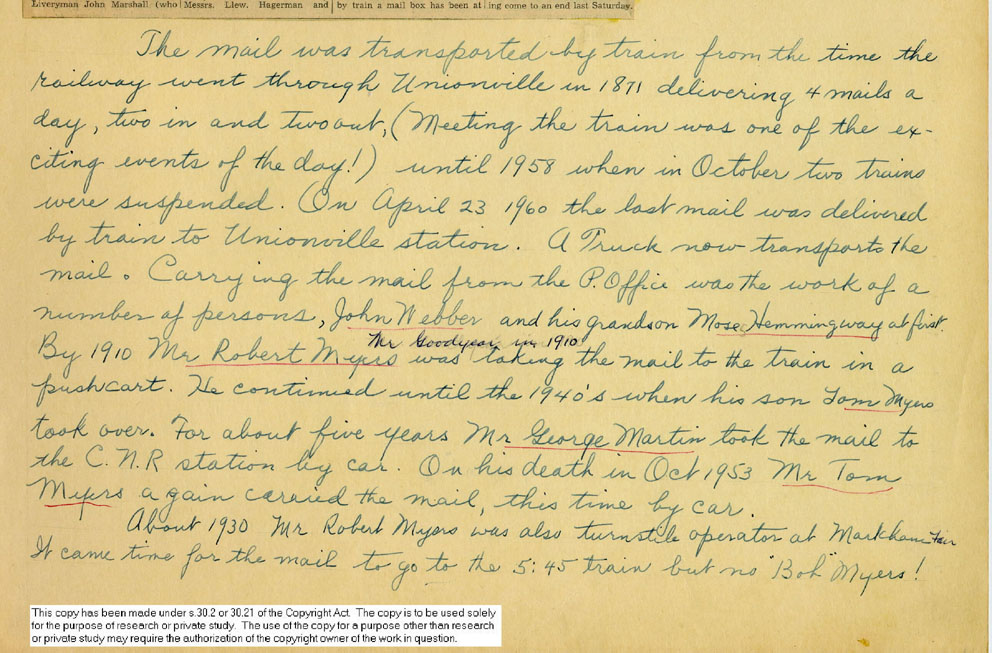 Liveryman John Marshall (who Messrs. Llew. Hagerman and by train a mail box has been at ing come to an end last Saturday.
The mail was transported by train from the time the
railway went through Unionville in 1871 delivering 4 mails a
day, two in and two out, (Meeting the train was one of the ex-
citing events of the day!) until 1958 when in October two trains
were suspended. On April 23 1960 the last mail was delivered
by train to Unionville station. A Truck now transports the
mail. Carrying the mail from the P. Office was the work of a
number of persons, John Webber and his grandson Mose Hemmingway at first.
Mr Goodyear in 1910
By 1910 Mr Robert Myers was taking the mail to the train in a
pushcart. He continued until the 1940's when his son Tom Myers
took over. For about five years Mr George Martin took the mail to
the C.N.R station by car. On his death in Oct 1953 Mr Tom
Myers again carried the mail, this time by car.
About 1930 Mr Robert Myers was also turnstile operator at Markham Fair
It came time for the mail to go to the 5:45 train but no "Bob" Myers!
This copy has been made under s.30.2 or 30.21 of the Copyright Act. The copy is to be used solely
for the purpose of research or private study. The use of the copy for a purpose other than research
or private study may require the authorization of the copyright owner of the work in question.